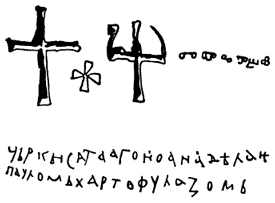 ЧЬРКЬІСАТААГОНОАНАЗѢЛАН
ПАУЛОМЬХАРТОФУЛАЗОМЬ